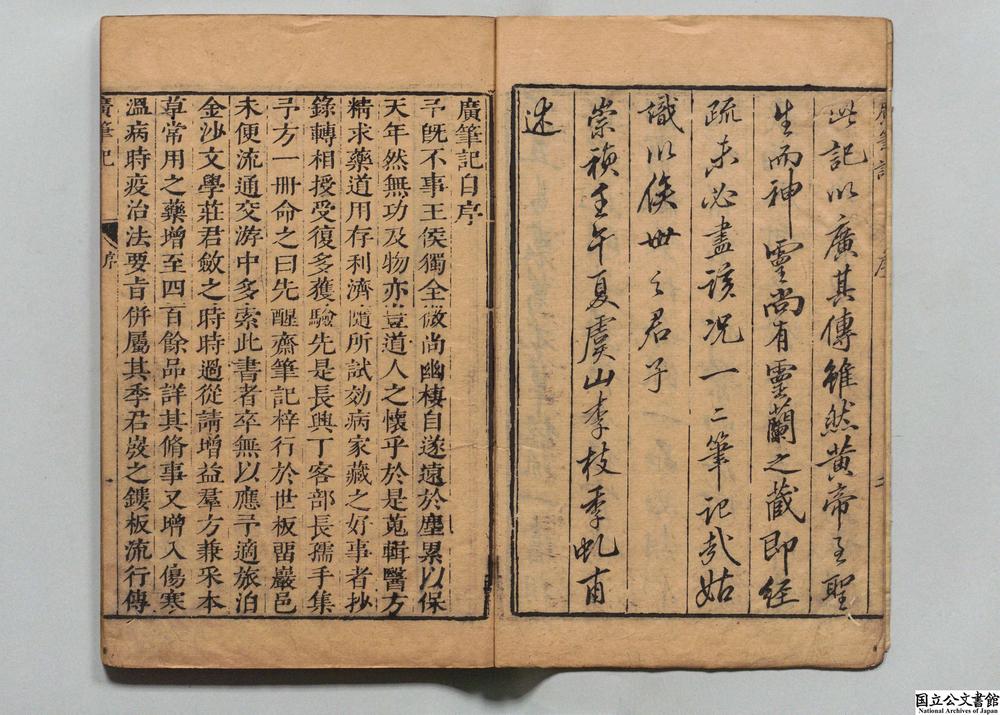 廣筆記 序 二
此記以廣其傳雖然黄帝至聖
生而神靈尚有靈蘭之藏即經
疏未必盡該况一二筆記哉姑
識以俟世之君子
崇禎壬午夏虞山李枝季虬甫
述
廣筆記自序
予既不事王侯獨全微尚幽棲自遂遠於塵累以保
天年然無功及物亦豈道人之懷乎於是蒐輯醫方
精求藥道用存利濟隨所試効病家藏之好事者抄
錄轉相授受復多獲驗先是長興丁客部長孺手集
予方一冊命之曰先醒齋筆記梓行於世板畱巖邑
未便流通交游中多索此書者卒無以應予適旅泊
金沙文學莊君斂之時時過從請增益羣方兼采本
草常用之藥增至四百餘品詳其脩事又增入傷寒
溫病時疫治法要旨併屬其季君㢮之鏤板流行傳
廣筆記 序 一
国立公文書館
National Archives of Japan